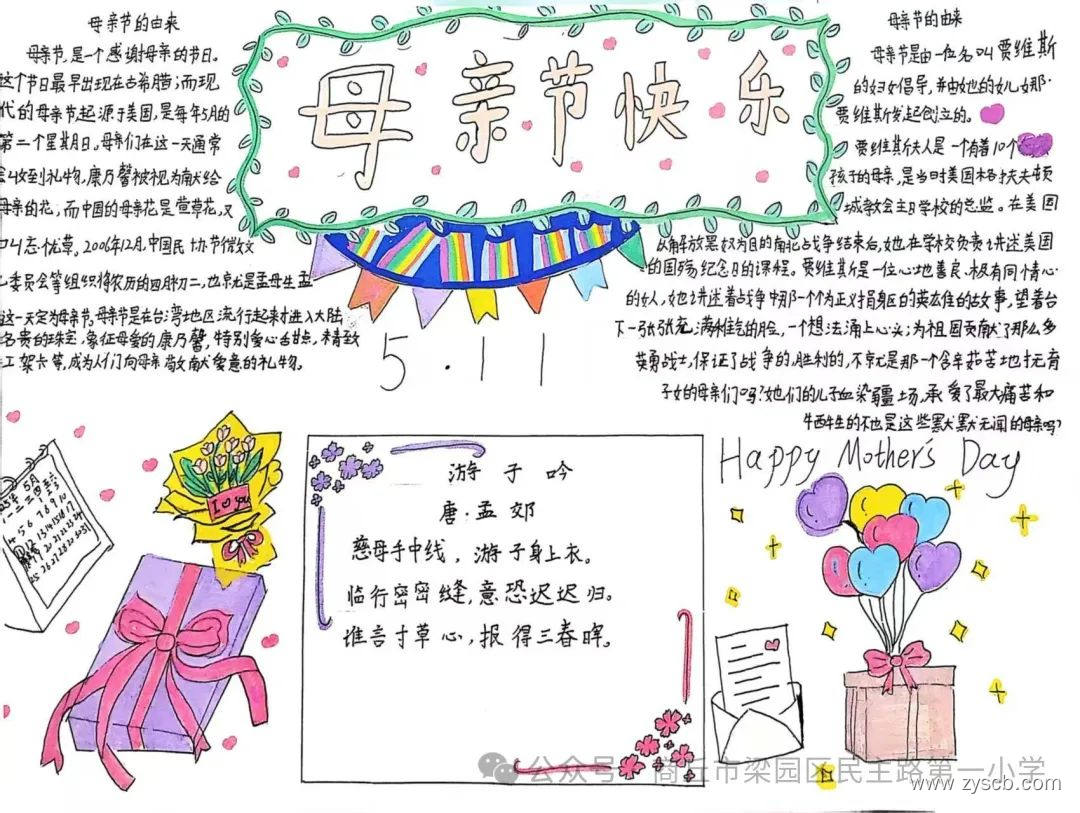 母亲节快乐
5.11
母亲节的由来
母亲节,是一个感谢母亲的节日。
这个节日最早出现在古希腊;而现
代的母亲节起源于美国,是每年5月的
第二个星期日。母亲们在这一天通常
会收到礼物,康乃馨被视为献给
母亲的花;而中国的母亲花是萱草花,又
叫忘忧草。2006年12月,中国民协节
委员会等组织将农历的四月初二,也就是孟母生孟
这一天定为母亲节。母亲节是在台湾地区流行起来才进入大陆
名贵的珠宝,象征母爱的康乃馨,特别爱心甜点,精致
工贺卡等,成为人们向母亲敬献爱意的礼物。
母亲节的由来
母亲节是由一位名叫贾维斯
的妇女倡导,并由她的女儿娜·
贾维斯发起创立的。
贾维斯夫人是一个有着10个
孩子的母亲,是当时美国格拉夫夫顿
城教会主日学校的总监。在美国
以解放黑奴为目的南北战争结束后,她在学校负责讲述美国
的国殇纪念日的课程。贾维斯是一位心地善良、极有同情心
的女人,她讲述着战争中那一个个为正义捐身的英雄的故事,望着台
下一张张充满稚气的脸,一个想法涌上心头:为祖国贡献了那么多
英勇战士,保证了战争的胜利的,不就是那一个个含辛茹苦地抚育
子女的母亲们吗?她们的儿子血染疆场,承受了最大痛苦和
牺牲的不也是这些默默无闻的母亲吗?
Happy Mother's Day
5月
I ♡ you
游子吟
唐·孟郊
慈母手中线,游子身上衣。
临行密密缝,意恐迟迟归。
谁言寸草心,报得三春晖。
公众号 商丘市梁园区民主路第一小学
www.zyscb.com